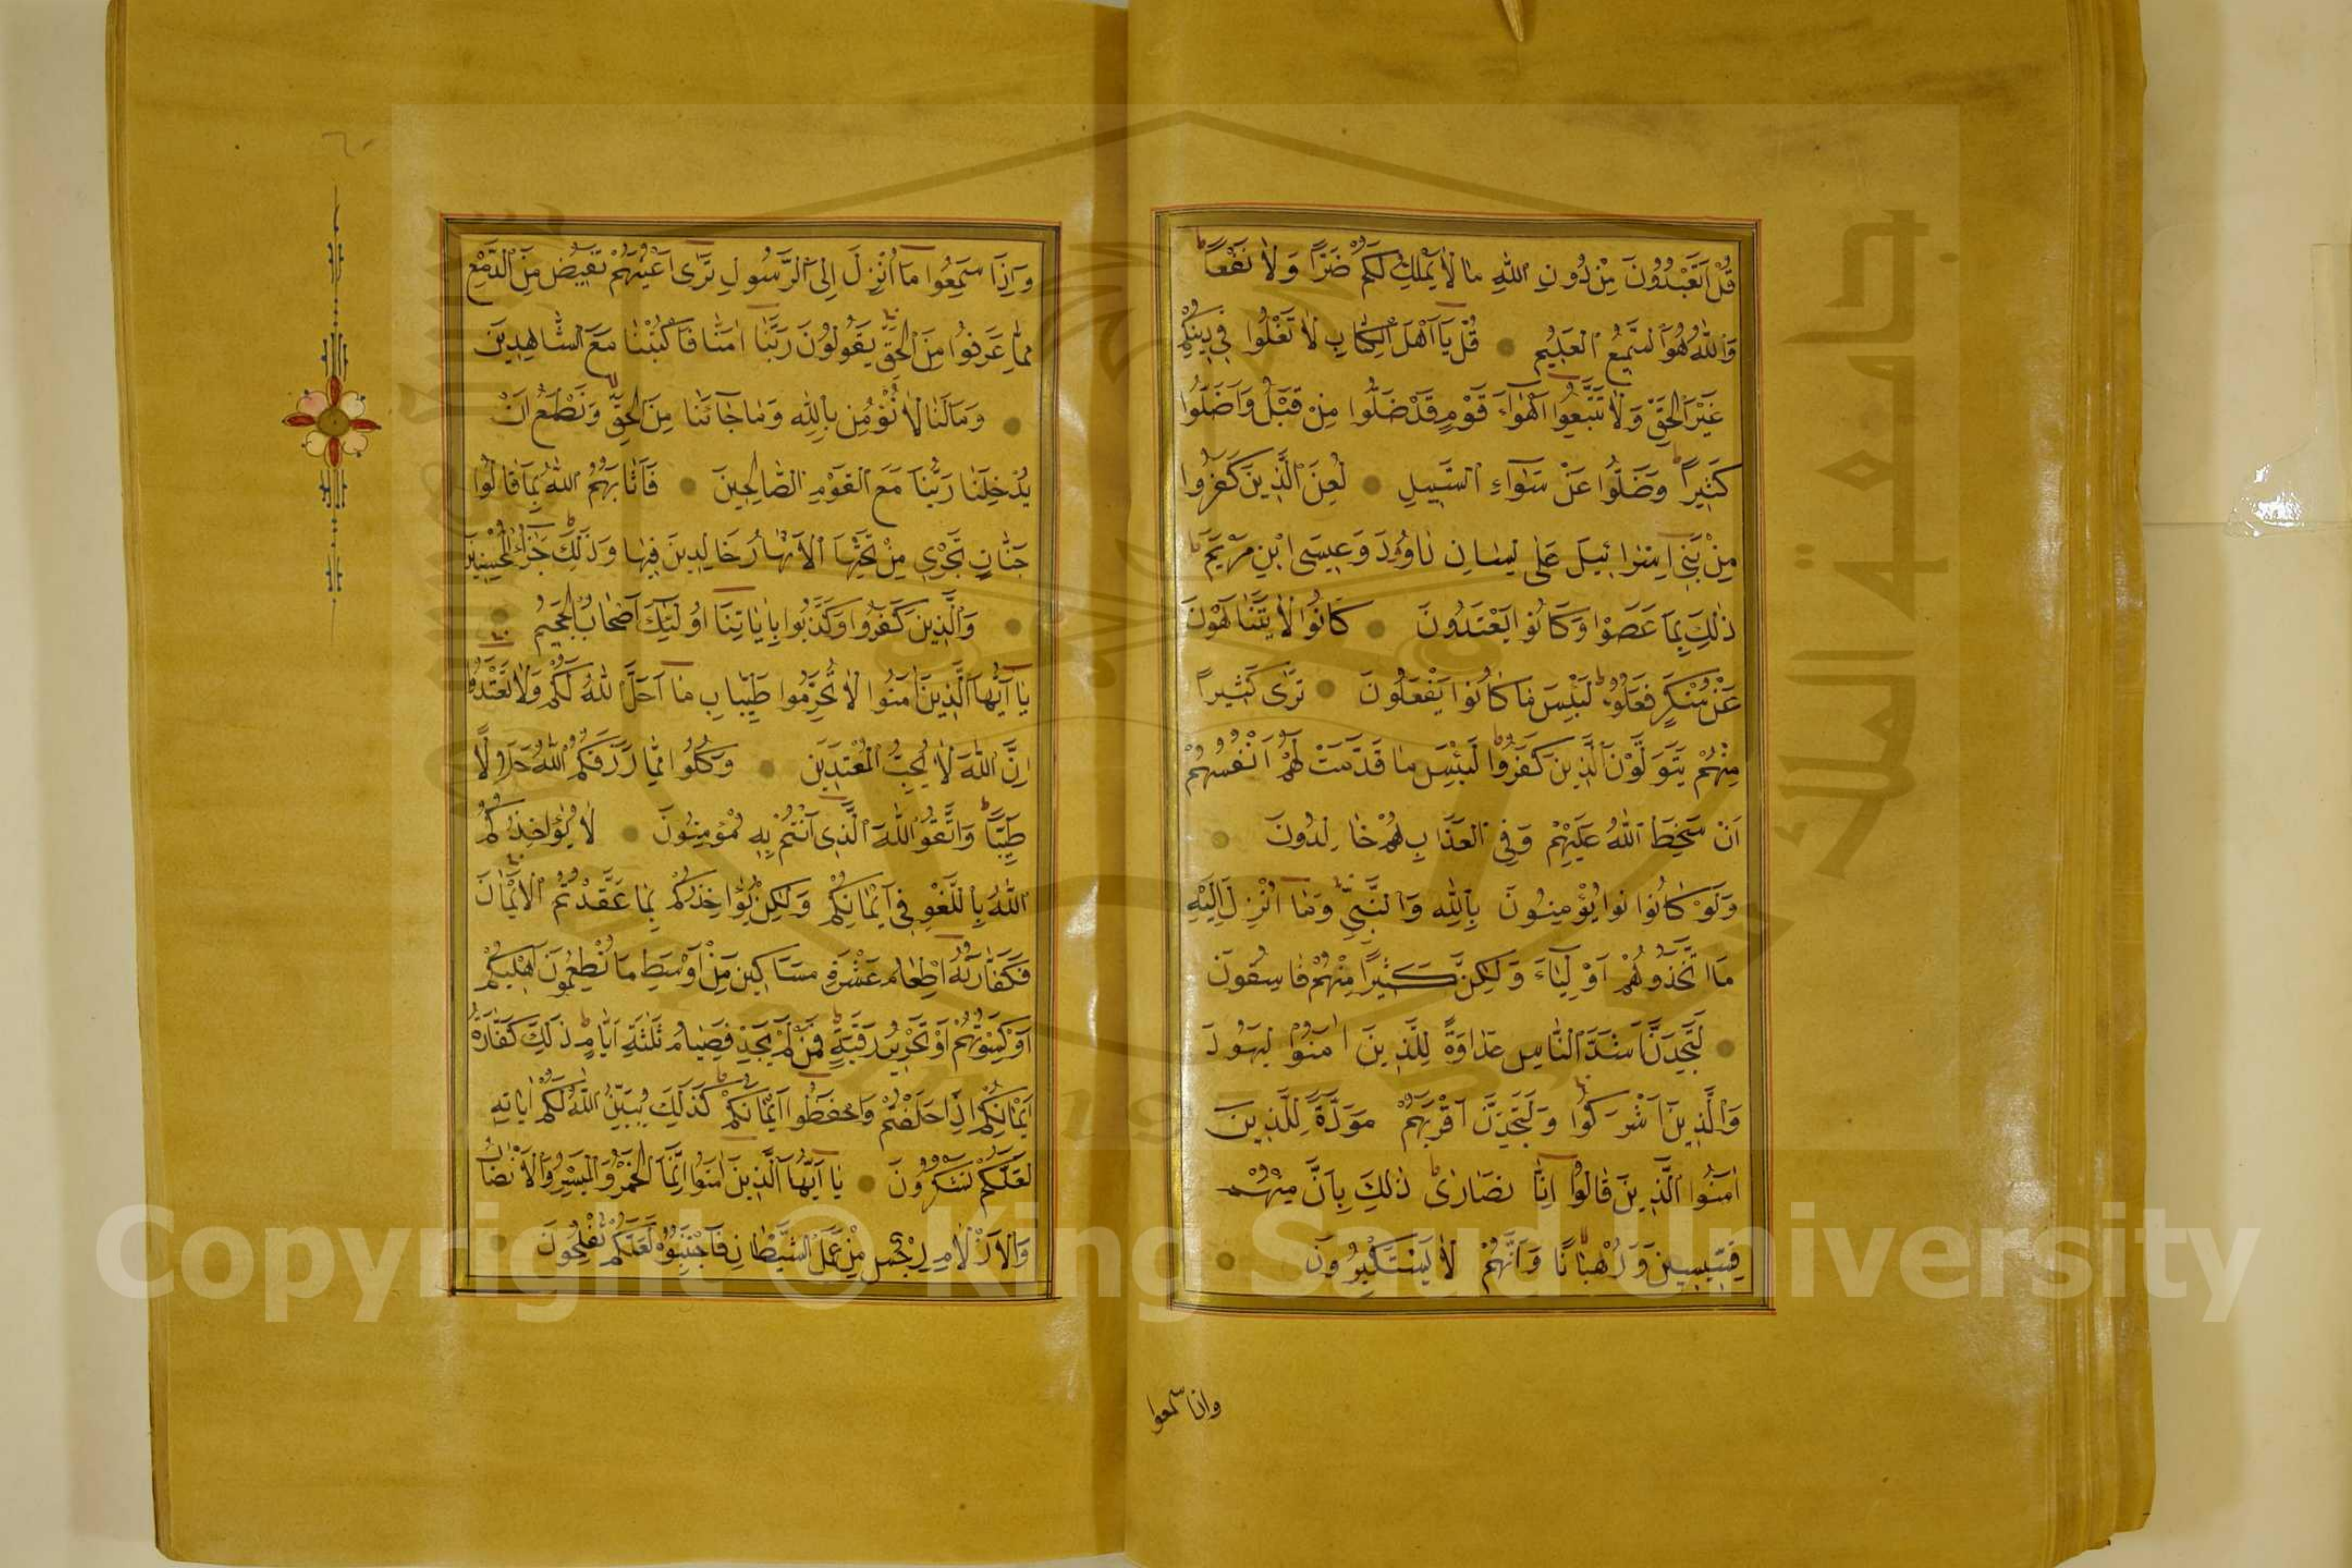 قُلْ اَتَعْبُدُونَ مِنْ دُونِ اللّٰهِ مَا لَا يَمْلِكُ لَكُمْ ضَرًّا وَلَا نَفْعًا
وَاللّٰهُ هُوَ السَّمِيعُ الْعَلِيمُ قُلْ يَا اَهْلَ الْكِتَابِ لَا تَغْلُوا فِي دِينِكُمْ
غَيْرَ الْحَقِّ وَلَا تَتَّبِعُوا اَهْوَاءَ قَوْمٍ قَدْ ضَلُّوا مِنْ قَبْلُ وَاَضَلُّوا
كَثِيرًا وَضَلُّوا عَنْ سَوَاءِ السَّبِيلِ لُعِنَ الَّذِينَ كَفَرُوا
مِنْ بَنِي اِسْرَائِيلَ عَلَى لِسَانِ دَاوُدَ وَعِيسَى ابْنِ مَرْيَمَ
ذٰلِكَ بِمَا عَصَوْا وَكَانُوا يَعْتَدُونَ كَانُوا لَا يَتَنَاهَوْنَ
عَنْ مُنْكَرٍ فَعَلُوهُ لَبِئْسَ مَا كَانُوا يَفْعَلُونَ تَرٰى كَثِيرًا
مِنْهُمْ يَتَوَلَّوْنَ الَّذِينَ كَفَرُوا لَبِئْسَ مَا قَدَّمَتْ لَهُمْ اَنْفُسُهُمْ
اَنْ سَخِطَ اللّٰهُ عَلَيْهِمْ وَفِي الْعَذَابِ هُمْ خَالِدُونَ
وَلَوْ كَانُوا يُؤْمِنُونَ بِاللّٰهِ وَالنَّبِيِّ وَمَا اُنْزِلَ اِلَيْهِ
مَا اتَّخَذُوهُمْ اَوْلِيَاءَ وَلٰكِنَّ كَثِيرًا مِنْهُمْ فَاسِقُونَ
لَتَجِدَنَّ اَشَدَّ النَّاسِ عَدَاوَةً لِلَّذِينَ اٰمَنُوا الْيَهُودَ
وَالَّذِينَ اَشْرَكُوا وَلَتَجِدَنَّ اَقْرَبَهُمْ مَوَدَّةً لِلَّذِينَ
اٰمَنُوا الَّذِينَ قَالُوا اِنَّا نَصَارٰى ذٰلِكَ بِاَنَّ مِنْهُمْ
قِسِّيسِينَ وَرُهْبَانًا وَاَنَّهُمْ لَا يَسْتَكْبِرُونَ
واذا سمعوا
٦٠
وَاِذَا سَمِعُوا مَا اُنْزِلَ اِلَى الرَّسُولِ تَرٰى اَعْيُنَهُمْ تَفِيضُ مِنَ الدَّمْعِ
مِمَّا عَرَفُوا مِنَ الْحَقِّ يَقُولُونَ رَبَّنَا اٰمَنَّا فَاكْتُبْنَا مَعَ الشَّاهِدِينَ
وَمَا لَنَا لَا نُؤْمِنُ بِاللّٰهِ وَمَا جَاءَنَا مِنَ الْحَقِّ وَنَطْمَعُ اَنْ
يُدْخِلَنَا رَبُّنَا مَعَ الْقَوْمِ الصَّالِحِينَ فَاَثَابَهُمُ اللّٰهُ بِمَا قَالُوا
جَنَّاتٍ تَجْرِي مِنْ تَحْتِهَا الْاَنْهَارُ خَالِدِينَ فِيهَا وَذٰلِكَ جَزَاءُ الْمُحْسِنِينَ
وَالَّذِينَ كَفَرُوا وَكَذَّبُوا بِاٰيَاتِنَا اُولٰئِكَ اَصْحَابُ الْجَحِيمِ
يَا اَيُّهَا الَّذِينَ اٰمَنُوا لَا تُحَرِّمُوا طَيِّبَاتِ مَا اَحَلَّ اللّٰهُ لَكُمْ وَلَا تَعْتَدُوا
اِنَّ اللّٰهَ لَا يُحِبُّ الْمُعْتَدِينَ وَكُلُوا مِمَّا رَزَقَكُمُ اللّٰهُ حَلَالًا
طَيِّبًا وَاتَّقُوا اللّٰهَ الَّذِي اَنْتُمْ بِهِ مُؤْمِنُونَ لَا يُؤَاخِذُكُمُ
اللّٰهُ بِاللَّغْوِ فِي اَيْمَانِكُمْ وَلٰكِنْ يُؤَاخِذُكُمْ بِمَا عَقَّدْتُمُ الْاَيْمَانَ
فَكَفَّارَتُهُ اِطْعَامُ عَشَرَةِ مَسَاكِينَ مِنْ اَوْسَطِ مَا تُطْعِمُونَ اَهْلِيكُمْ
اَوْ كِسْوَتُهُمْ اَوْ تَحْرِيرُ رَقَبَةٍ فَمَنْ لَمْ يَجِدْ فَصِيَامُ ثَلٰثَةِ اَيَّامٍ ذٰلِكَ كَفَّارَةُ
اَيْمَانِكُمْ اِذَا حَلَفْتُمْ وَاحْفَظُوا اَيْمَانَكُمْ كَذٰلِكَ يُبَيِّنُ اللّٰهُ لَكُمْ اٰيَاتِهِ
لَعَلَّكُمْ تَشْكُرُونَ يَا اَيُّهَا الَّذِينَ اٰمَنُوا اِنَّمَا الْخَمْرُ وَالْمَيْسِرُ وَالْاَنْصَابُ
وَالْاَزْلَامُ رِجْسٌ مِنْ عَمَلِ الشَّيْطَانِ فَاجْتَنِبُوهُ لَعَلَّكُمْ تُفْلِحُونَ
جامعة الملك سعود
Copyright © King Saud University